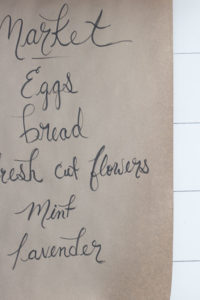 Market
Eggs
bread
fresh cut flowers
Mint
lavender